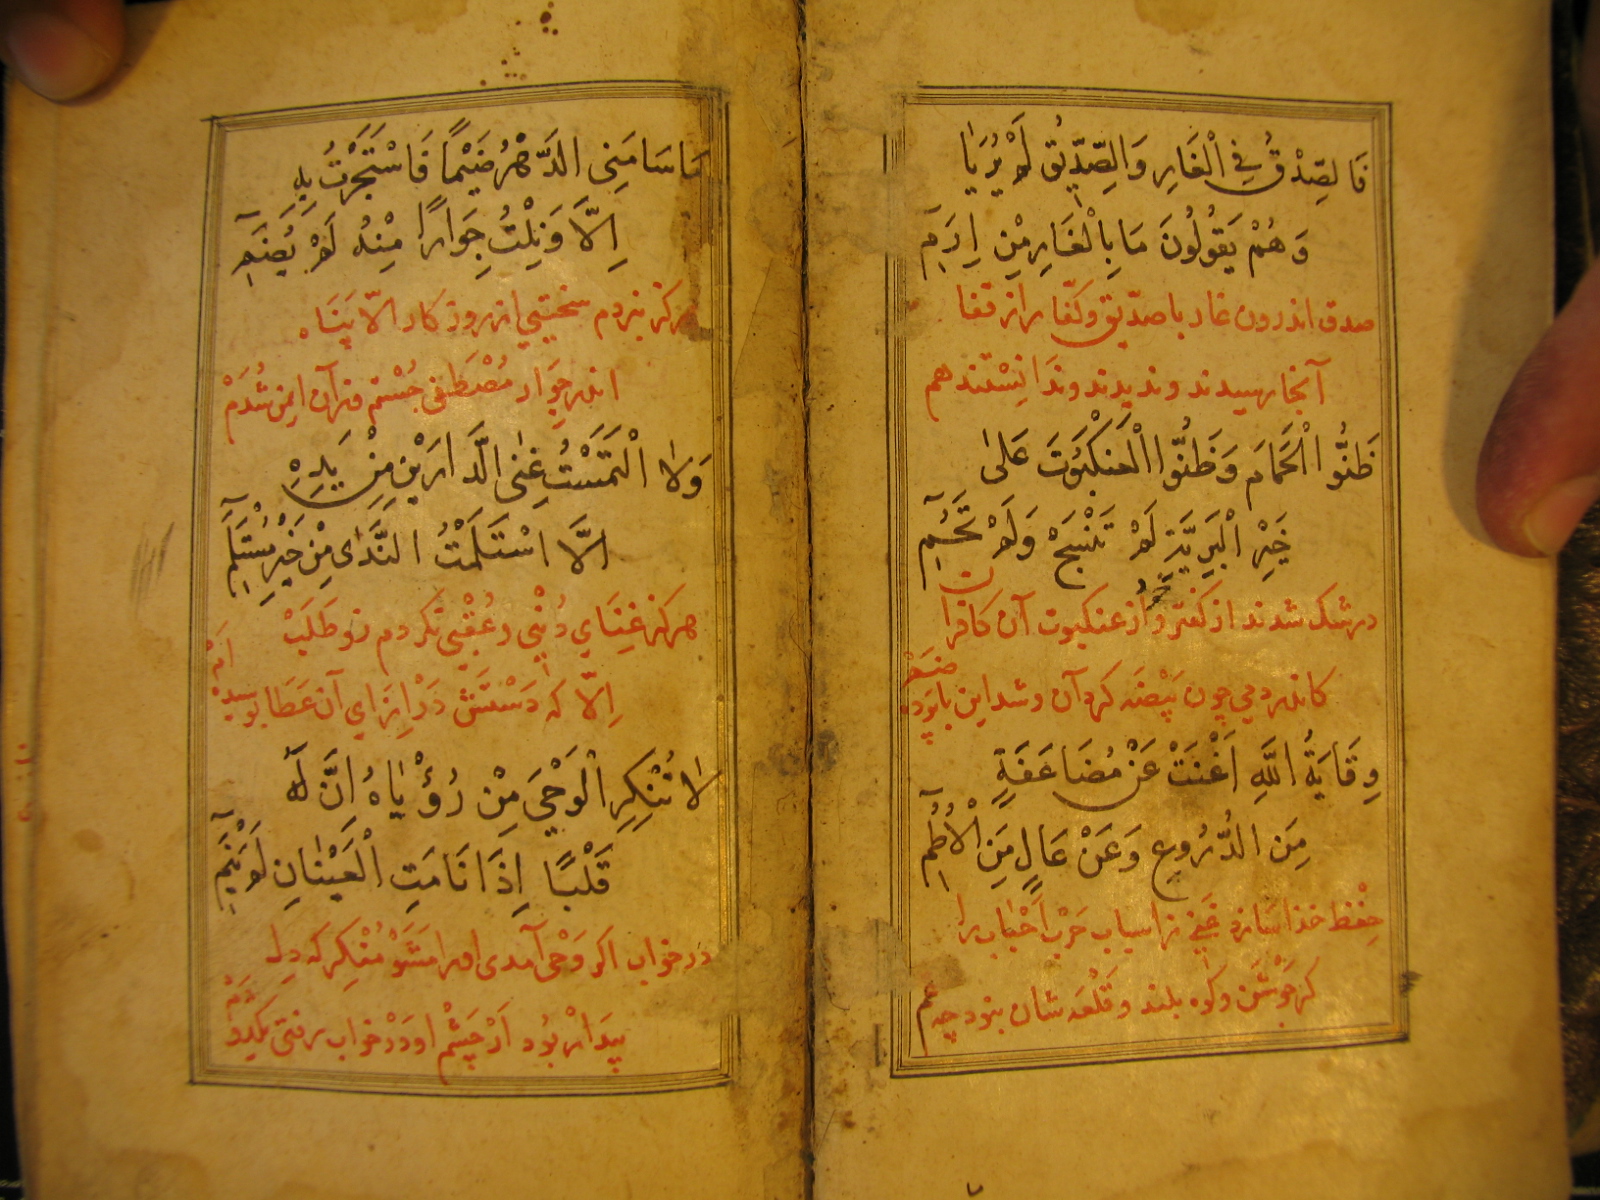 فَالصِّدْقُ فِي الْغَارِ وَالصِّدِّيقُ لَمْ يُرَيَا
وَهُمْ يَقُولُونَ مَا بِالْغَارِ مِنْ اِرَمِ
صدق اندرون غار با صدّيق و كفّار از قفا
آنجا رسيدند و نديدند و ندانِسْتند هم
ظَنُّوا الْحَمَامَ وَظَنُّوا الْعَنْكَبُوتَ عَلٰى
خَيْرِ الْبَرِيَّةِ لَمْ تَنْسُجْ وَلَمْ تَحُمِ
در شك شدند از كفتر و از عنكبوت آن كافران
كاندر دمى چون بَيْضَه كرد آن و شد اين با پود
وِقَايَةُ اللَّهِ اَغْنَتْ عَنْ مُضَاعَفَةٍ
مِنَ الدُّرُوعِ وَعَنْ عَالٍ مِنَ الْاُطُمِ
حِفْظ خدا سازد غنى ز اسباب حَرْب اَحْباب را
كز جَوْشَن و كوه بلند و قَلْعَه شان بنود چه غم
مَا سَامَنِى الدَّهْرُ ضَيْمًا فَاسْتَجَرْتُ بِهِ
اِلَّا وَنِلْتُ جِوَارًا مِنْهُ لَمْ يُضَمِ
هركز نبردم سختيى از روزكار الّا پَنَاه
اندر جِوَار مُصْطَفى جُسْتم وز آن ايمن شُدَمْ
وَلَا الْتَمَسْتُ غِنَى الدَّارَيْنِ مِنْ يَدِهِ
اِلَّا اسْتَلَمْتُ النَّدٰى مِنْ خَيْرِ مُسْتَلَمِ
هركز غِنَاى دُنْيى و عُقْبى نكردم زو طَلَبْ
اِلّا كه دَسْتَش دَرْ اِزَاى آن عَطَا بوسيده اَمْ
لَا تُنْكِرِ الْوَحْيَ مِنْ رُؤْيَاهُ اِنَّ لَهُ
قَلْبًا اِذَا نَامَتِ الْعَيْنَانِ لَمْ يَنَمِ
در خواب اكر وَحْى آمدى او را مَشَوْ مُنْكِر كه دِل
بيدار بُود اَرْ چَشْمِ او دَرْ خواب رفتى